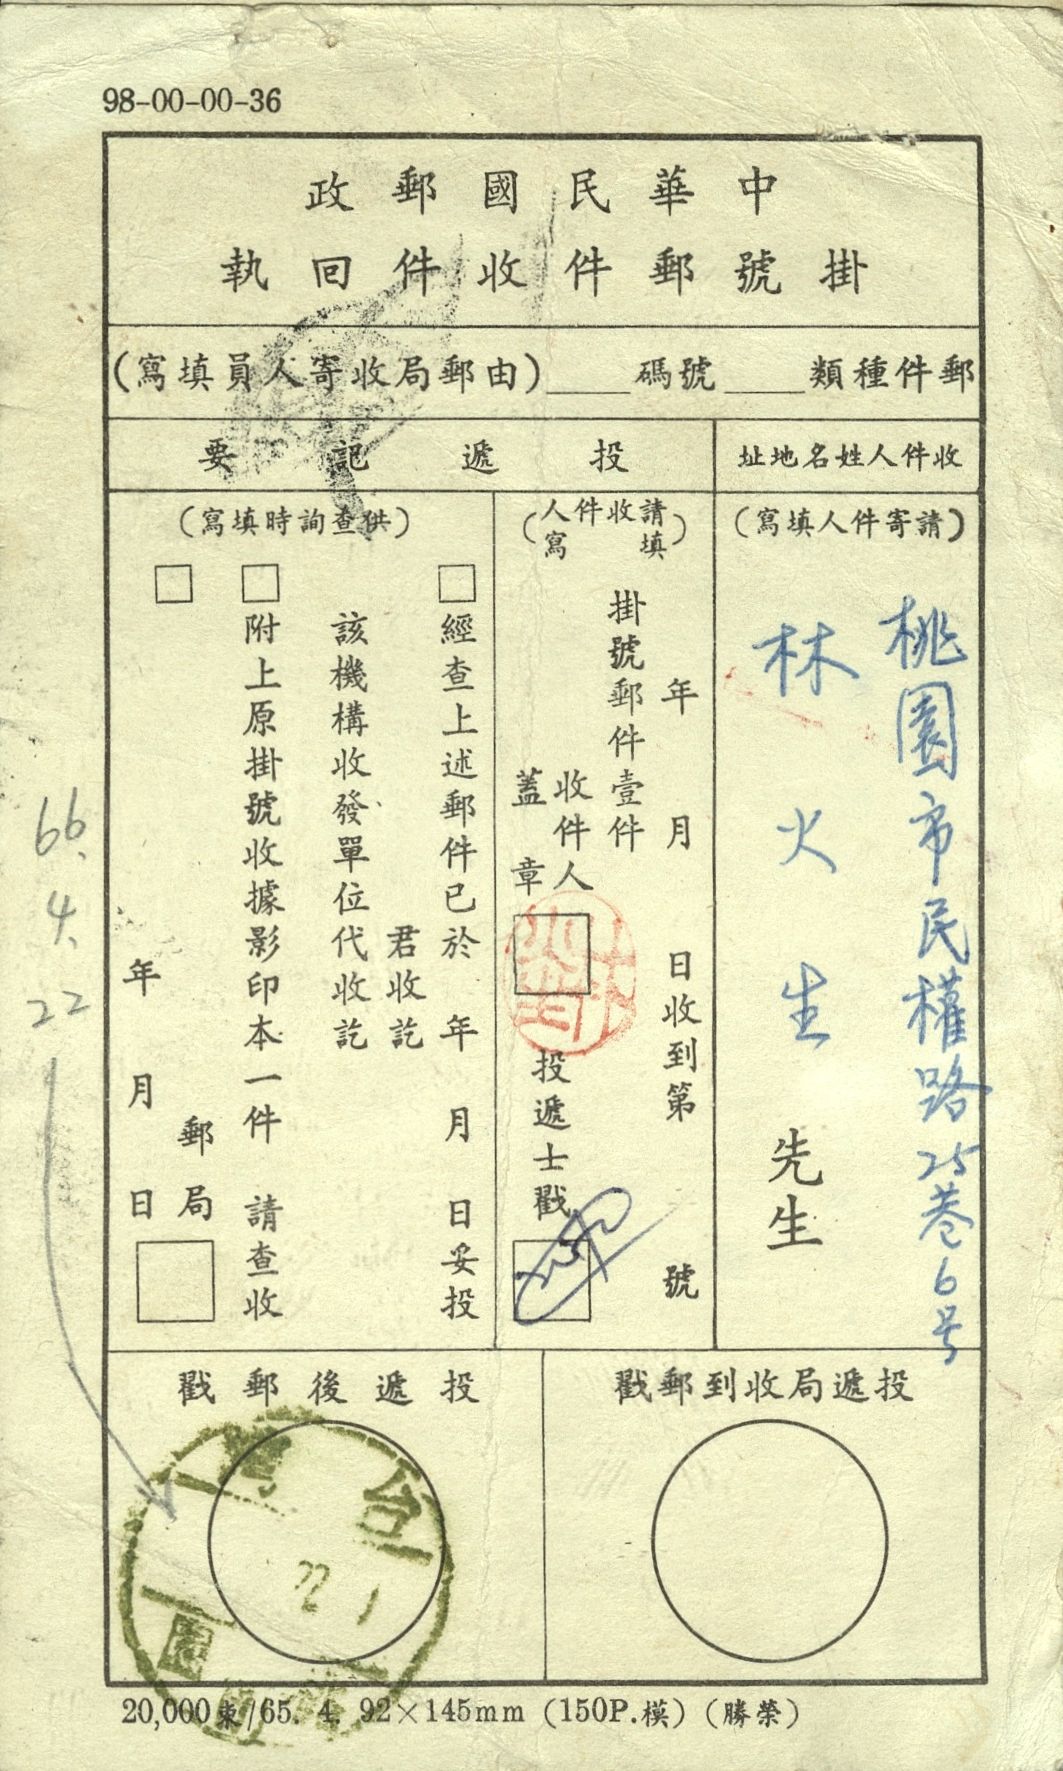 98-00-00-36
中華民國郵政
掛號郵件收件回執
郵件種類____號碼____(由郵局收寄人員填寫)
收件人姓名地址
(請寄件人填寫)
桃園市民權路25巷6号
林火生先生
投遞記要
(請收件人填寫)
年月日收到第號
掛號郵件壹件
收件人
蓋章
投遞士戳
(供查詢時填寫)
經查上述郵件已於年月日妥投
君收訖
該機構收發單位代收訖
附上原掛號收據影印本一件請查收
郵局
年月日
66.4.22
投遞局收到郵戳
投遞後郵戳
台灣
22 1
園
20,000束/65. 4. 92×145mm (150P.模) (勝榮)